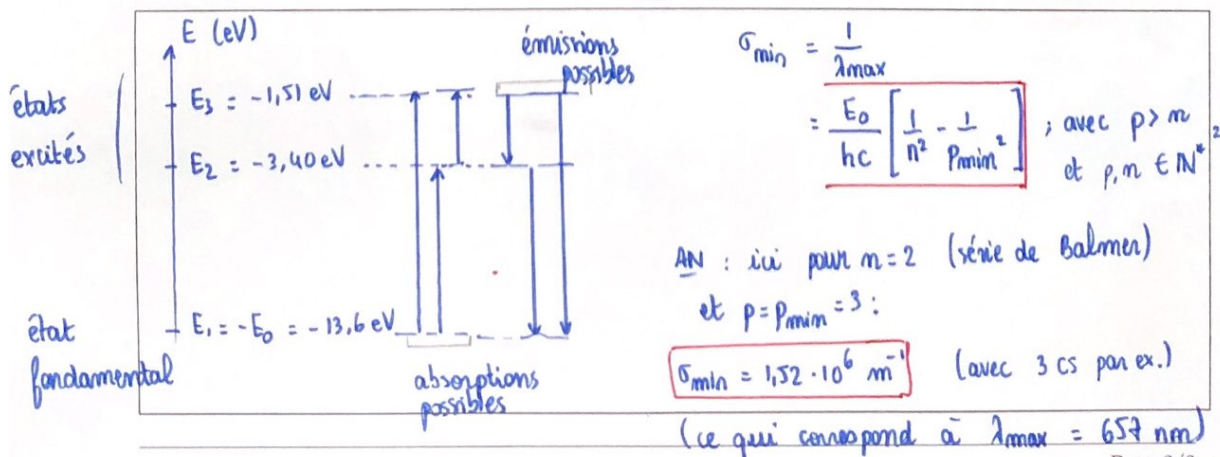 E (eV)
états
excités
E₃ = -1,51 eV
E₂ = -3,40 eV
émissions
possibles
état
fondamental
E₁ = -E₀ = -13,6 eV
absorptions
possibles
σmin = 1/λmax
= E₀/hc [1/n² - 1/Pmin²] ; avec p > n
et p, n ∈ ℕ*²
AN : ici pour n = 2 (série de Balmer)
et p = Pmin = 3 :
σmin = 1,52 · 10⁶ m⁻¹ (avec 3 cs par ex.)
(ce qui correspond à λmax = 657 nm)